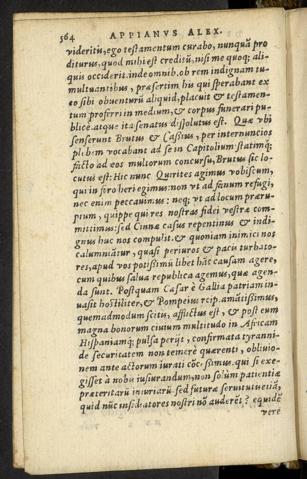 564 APPIANVS ALEX.
videritis, ego testamentum curabo, nunquã pro
diturus, quod mihi est creditũ, nisi me quoq; ali-
quis occiderit. inde omnib. ob rem indignam tu-
multuantibus, præsertim his qui sperabant ex
eo sibi obuenturũ aliquid, placuit & testamen-
tum proferri in medium, & corpus funerari pu-
blice. atque ita senatus dissolutus est. Quæ vbi
senserunt Brutus & Cassius, per internuncios
plebem vocabant ad se in Capitolium: statimq;
facto ad eos multorum concursu, Brutus sic lo-
cutus est: Hic nunc Quirites agimus vobiscum,
qui in foro heri egimus: non vt ad fanum refugi,
nec enim peccauimus: neq; vt ad locum præru-
ptum, quippe qui res nostras fidei vestræ com-
mittimus: sed Cinnæ casus repentinus & indi-
gnus huc nos compulit. & quoniam inimici nos
calumniãtur, quasi periuros & pacis turbato-
res, apud vos potißimũ libet hãc causam agere,
cum quibus salua republica agemus, quæ agen-
da sunt. Postquam Cæsar è Gallia patriam in-
uasit hostiliter, & Pompeius reip. amãtißimus,
quemadmodum scitis, afflictus est, & post eum
magna bonorum ciuium multitudo in Africam
Hispaniamq; pulsa perijt, confirmata tyranni-
de securitatem non temerè quærenti, obliuio-
nem ante actorum iurati cõceßimus. qui si exe-
gisset à nobis iusiurandum, non solùm patientiæ
præteritarũ iniuriarũ sed futuræ seruitutis etiã,
quid nũc insidiatores nostri nõ auderẽt? equidẽ
verè